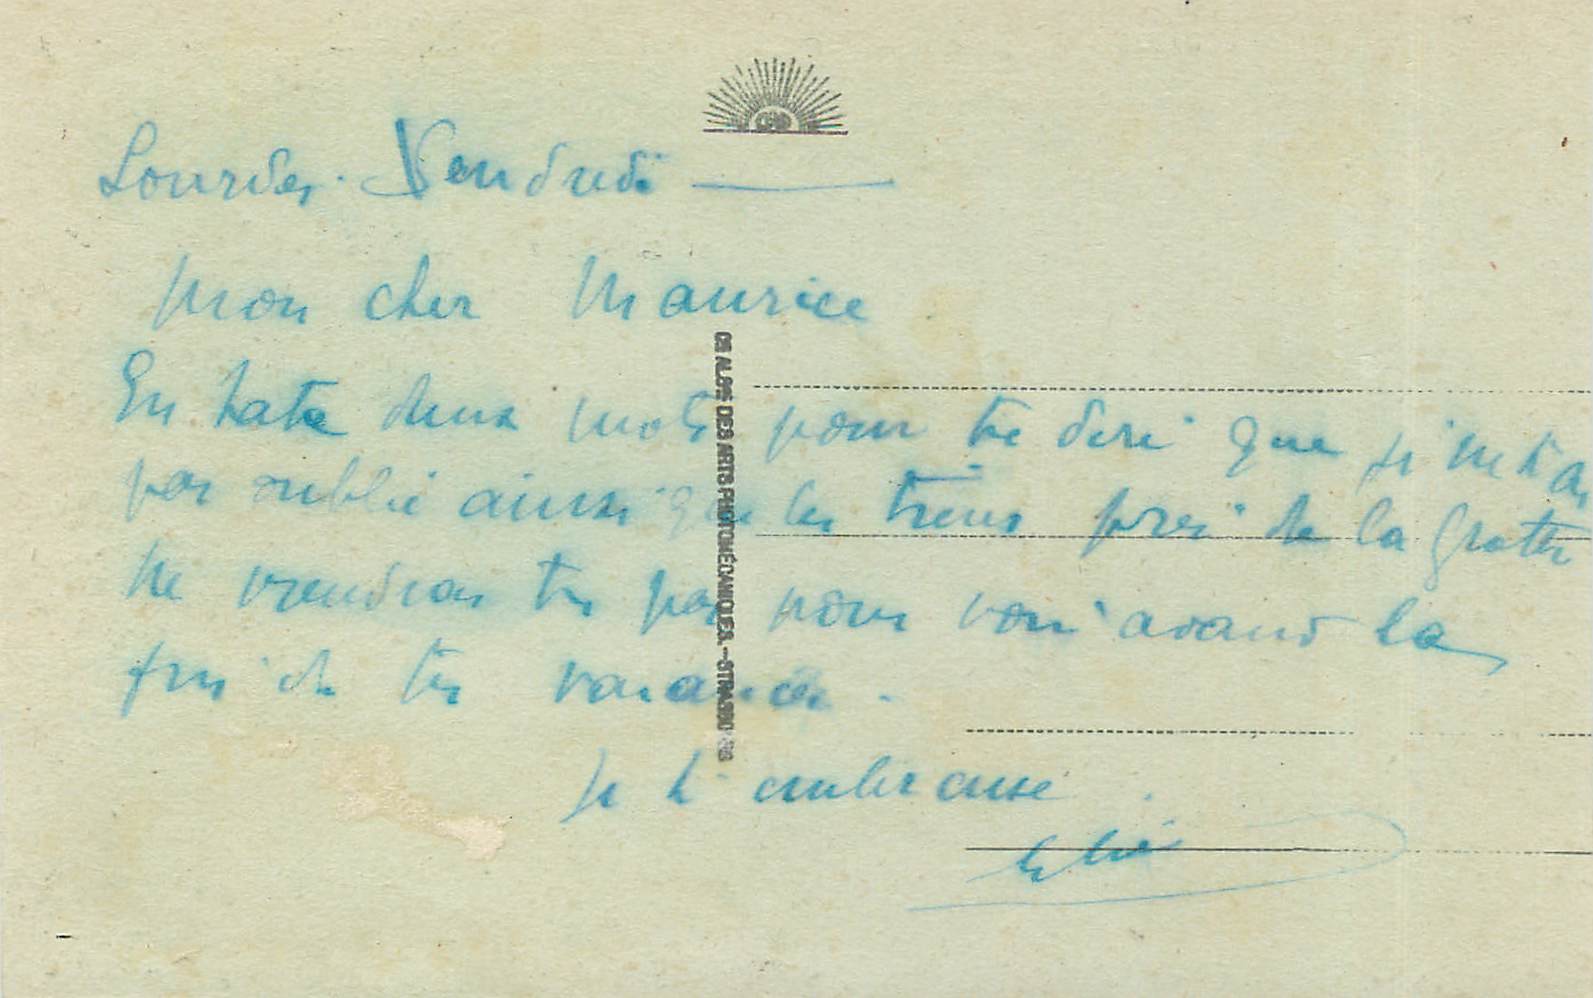 Lourdes. Vendredi
Mon cher Maurice
En hate deux mots pour te dire que je ne t'ai
pas oublié ainsi que les tiens près de la Grotte
Ne viendras tu pas nous voir avant la
fin de tes vacances.
Je t'embrasse
CIE ALSne DES ARTS PHOTOMÉCANIQUES. - STRASBOURG